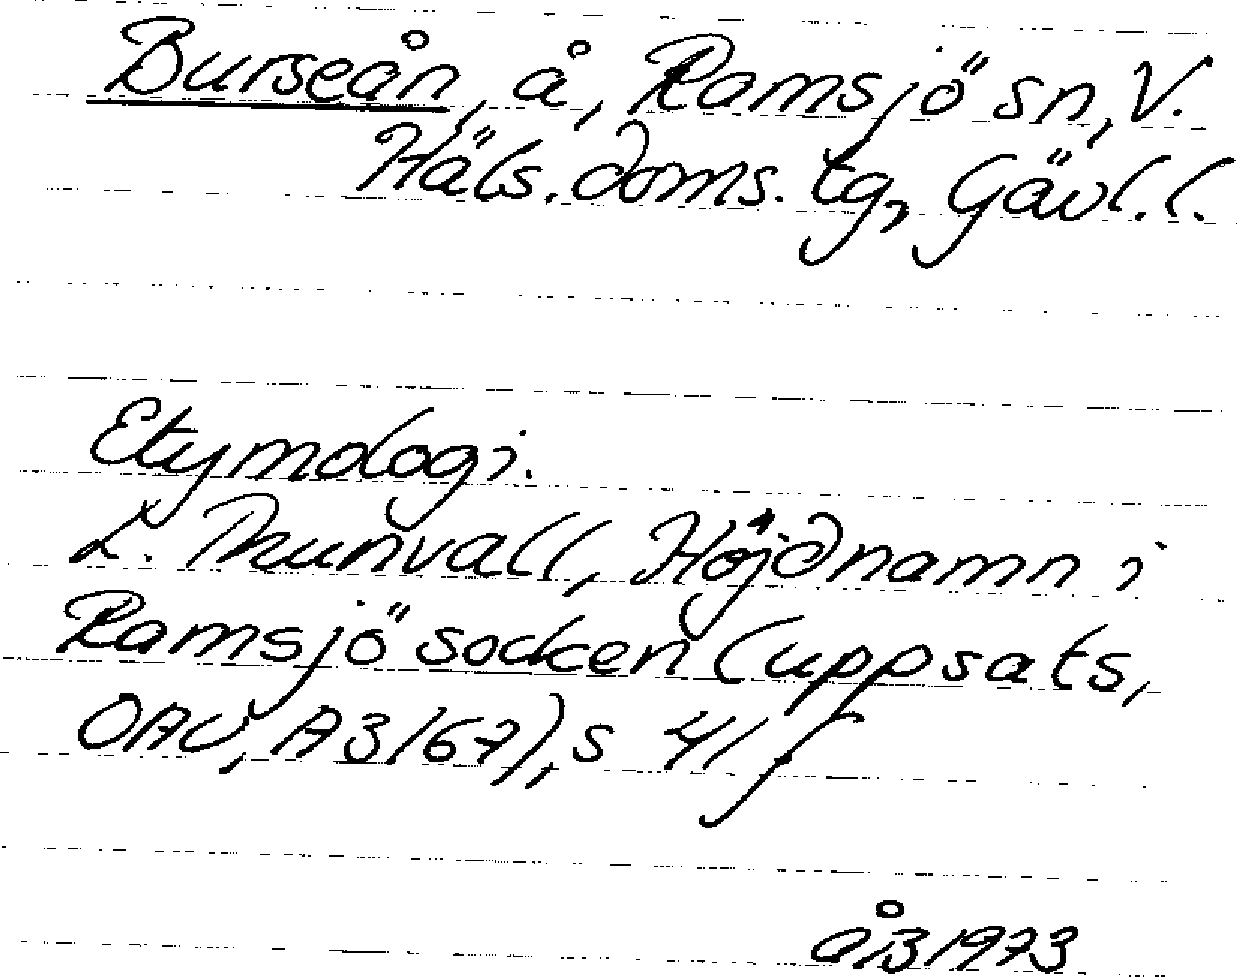 Burseån, å, Ramsjö sn, V.
Häls. doms. tg, Gävl. l.
Etymologi.
L. Thunvall, Höjdnamn i
Ramsjö socken (uppsats,
OAU, A3/67), s 41 f
ÅB 1973